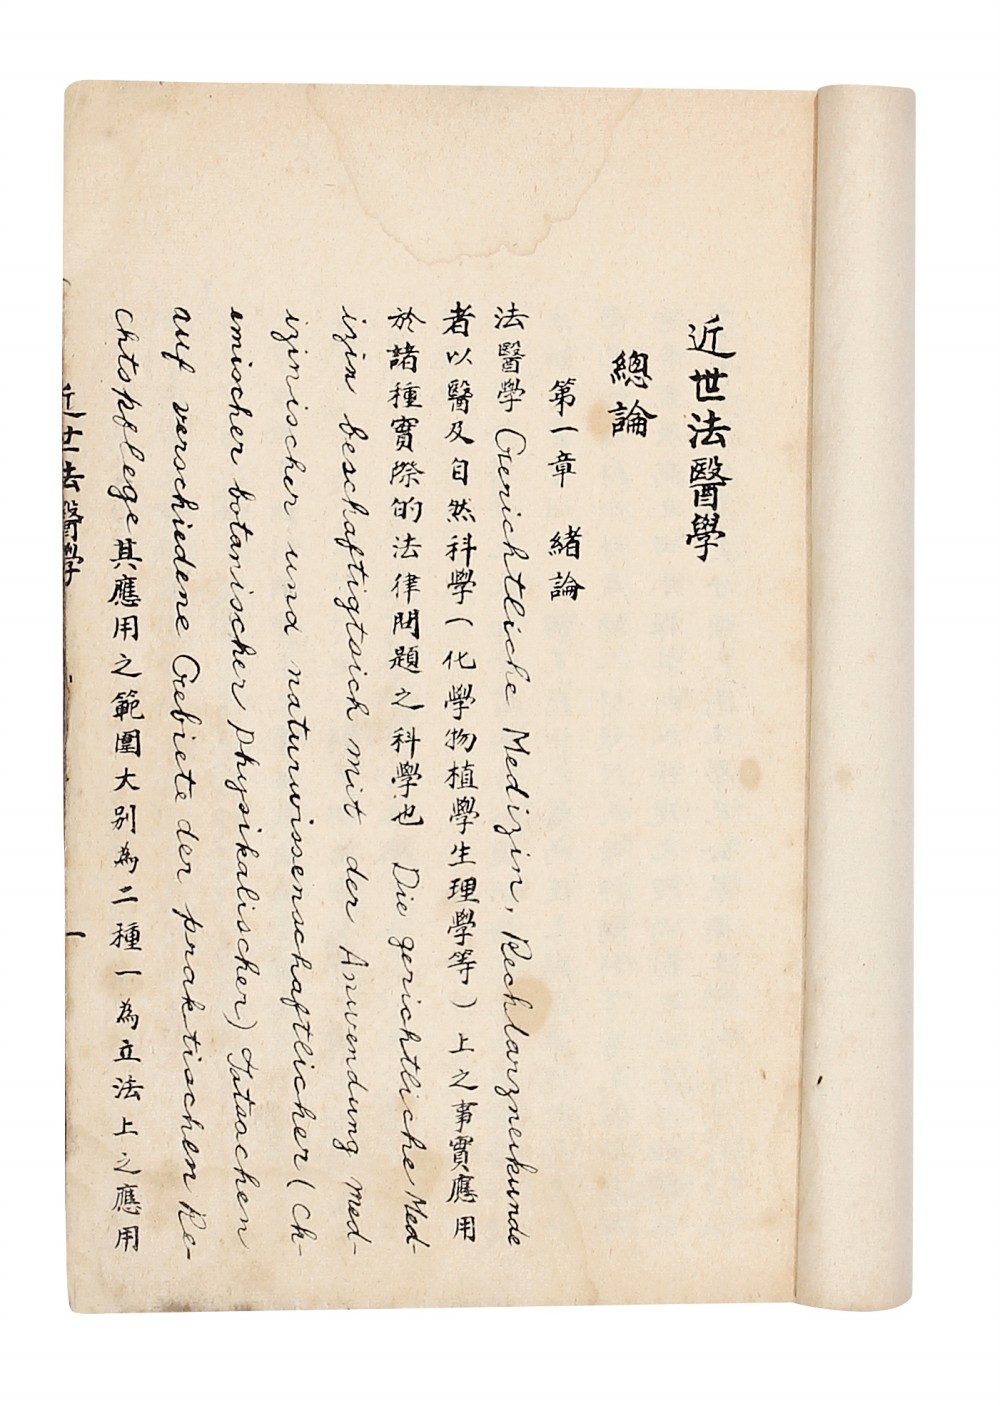 近世法醫學
總論
第一章 緒論
法醫學 Gerichtliche Medizin, Rechdarzneikunde
者以醫及自然科學(化學物植學生理學等)上之事實應用
於諸種實際的法律問題之科學也 Die gerichtliche Med-
izin beschaftigtsich mit der Anwendung med-
izinischer und naturwissenschaftlicher (ch-
emischer botanischer physikalischer) Tatsachen
auf verschiedene Gebiete der praktischen Re-
chtspflege其應用之範圍大別為二種一為立法上之應用
近世法醫學
一